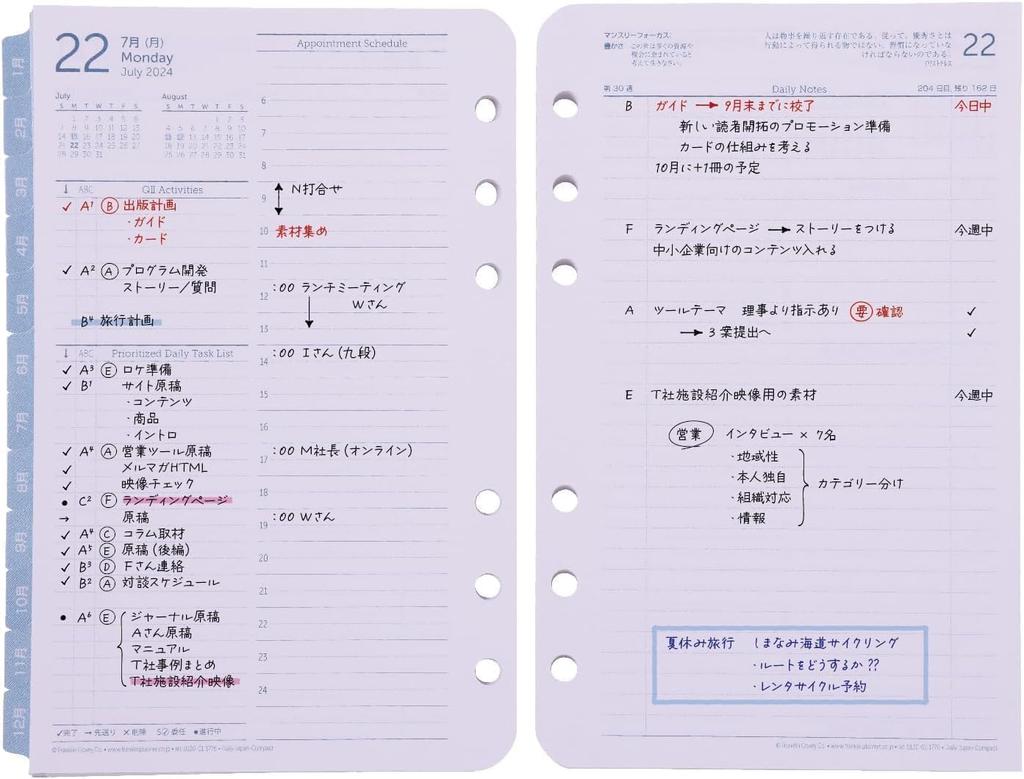 1月
2月
3月
4月
5月
6月
7月
8月
9月
10月
11月
12月
22
7月 (月)
Monday
July 2024
July
S M T W T F S
1 2 3 4 5 6
7 8 9 10 11 12 13
14 15 16 17 18 19 20
21 22 23 24 25 26 27
28 29 30 31
August
S M T W T F S
1 2 3
4 5 6 7 8 9 10
11 12 13 14 15 16 17
18 19 20 21 22 23 24
25 26 27 28 29 30 31
↓ ABC QII Activities
✓ A1 Ⓑ 出版計画
・ガイド
・カード
✓ A2 Ⓐ プログラム開発
ストーリー/質問
B4 旅行計画
↓ ABC Prioritized Daily Task List
✓ A3 Ⓔ ロケ準備
✓ B1 サイト原稿
・コンテンツ
・商品
・イントロ
✓ A4 Ⓐ 営業ツール原稿
✓ メルマガHTML
✓ 映像チェック
• C2 Ⓕ ランディングページ
→ 原稿
✓ A4 Ⓒ コラム取材
✓ A5 Ⓔ 原稿(後編)
✓ B3 Ⓓ Fさん連絡
✓ B2 Ⓐ 対談スケジュール
• A6 Ⓔ ジャーナル原稿
Aさん原稿
マニュアル
T社事例まとめ
T社施設紹介映像
✓完了 →先送り ×削除 S◯委任 •進行中
Appointment Schedule
6
7
8
9 N打合せ
10 素材集め
11
:00 ランチミーティング
12 Wさん
13
:00 Iさん(九段)
14
15
16
:00 M社長(オンライン)
17
18
:00 Wさん
19
20
21
22
23
24
マンスリーフォーカス:
豊かさ この世は多くの資源や
機会に恵まれていると
考えて生きなさい。
人は物事を繰り返す存在である。従って、優秀さとは
行動によって得られる物ではない。習慣になっていな
ければならないのである。
アリストテレス
22
第30週 Daily Notes 204日目、残り162日
B ガイド → 9月末までに校了 今日中
新しい読者開拓のプロモーション準備
カードの仕組みを考える
10月に+1冊の予定
F ランディングページ → ストーリーをつける 今週中
中小企業向けのコンテンツ入れる
A ツールテーマ 理事より指示あり ㊟要 確認 ✓
→ 3案提出へ ✓
E T社施設紹介映像用の素材 今週中
営業 インタビュー × 7名
・地域性
・本人独自
・組織対応
・情報
カテゴリー分け
夏休み旅行 しまなみ海道サイクリング
・ルートをどうするか??
・レンタサイクル予約